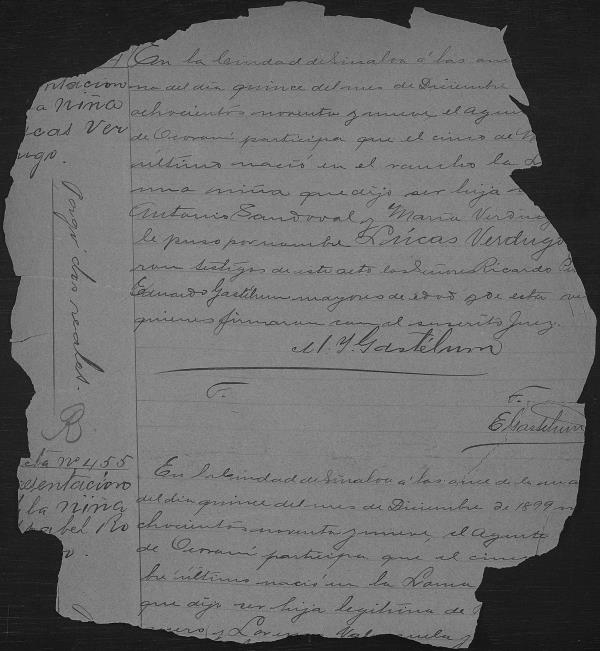 ntacion
a niña
cas Ver
ugo.
Pagó dos reales.
En la Ciudad de Sinaloa á las
na del dia quince del mes de Diciembre
ochocientos noventa y nueve, el Agen
de Ocoroni participa que el cinco de
último nació en el rancho la
una niña que dijo ser hija
Antonio Sandoval y Maria Verdug
le puso por nombre Lúcas Verdugo
ron testigos de este acto los Señores Ricardo
Eduardo Gastélum mayores de edad y de esta
quienes firmaran con el suscrito Juez.
M. Y. Gastélum
F.
F.
E Gastélum
cta No 455
esentacion
la niña
abel Ro
o.
En la Ciudad de Sinaloa á las once de la ma
del dia quince del mes de Diciembre de 1899 m
chocientos noventa y nueve, el Agente
de Ocoroni participa que el cinco
bre último nació en la Loma
que dijo ser hija legítima de
mero y Lorenza Valenzuela y